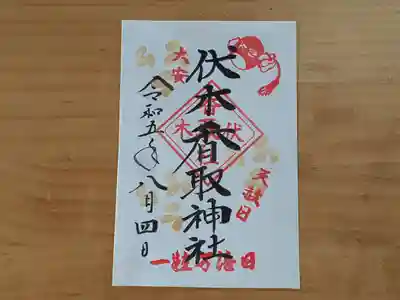 大安
伏木香取神社
令和五年八月四日
天赦日
一粒万倍日